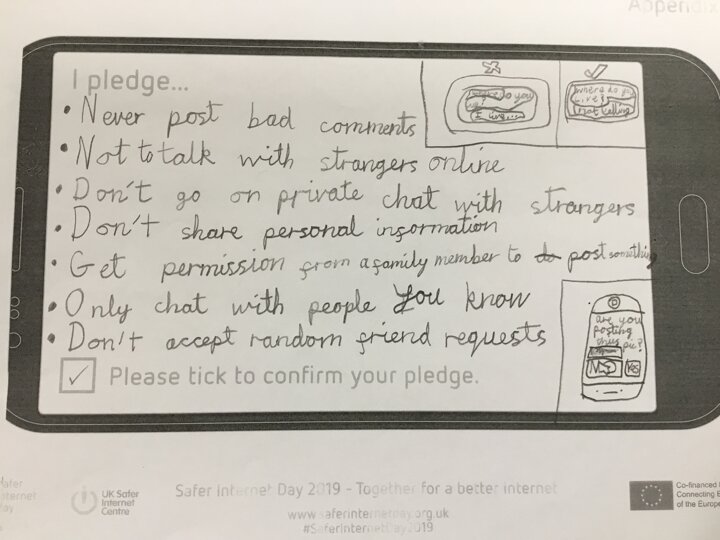 Appendix
I pledge...
• Never post bad comments
• Not to talk with strangers online
• Don't go on private chat with strangers
• Don't share personal information
• Get permission from a family member to do post something
• Only chat with people you know
• Don't accept random friend requests
Please tick to confirm your pledge.
where do you
I live...
where do you
live?
not telling
are you
posting
this pic?
No Yes
UK Safer
Internet
Centre
Safer Internet Day 2019 - Together for a better internet
www.saferinternetday.org.uk
#SaferInternetDay2019
Co-financed
Connecting
of the Europe